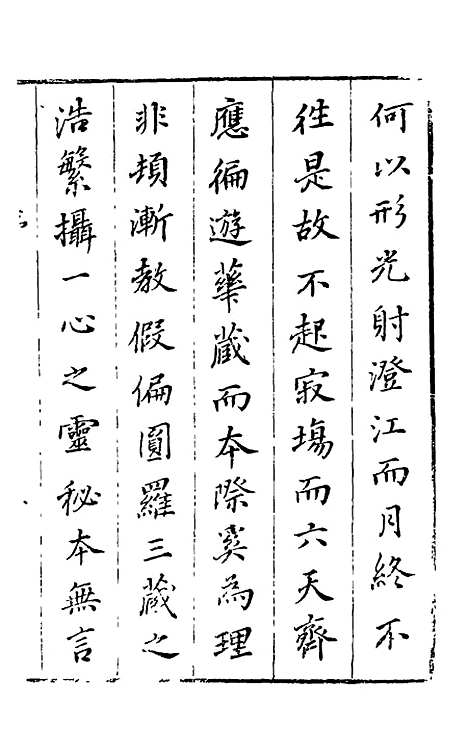 何以形光射澄江而月終不
徃是故不起寂塲而六天齊
應徧遊華蔵而本際奚為理
非頓漸教假偏圓羅三蔵之
浩繁攝一心之靈秘本無言